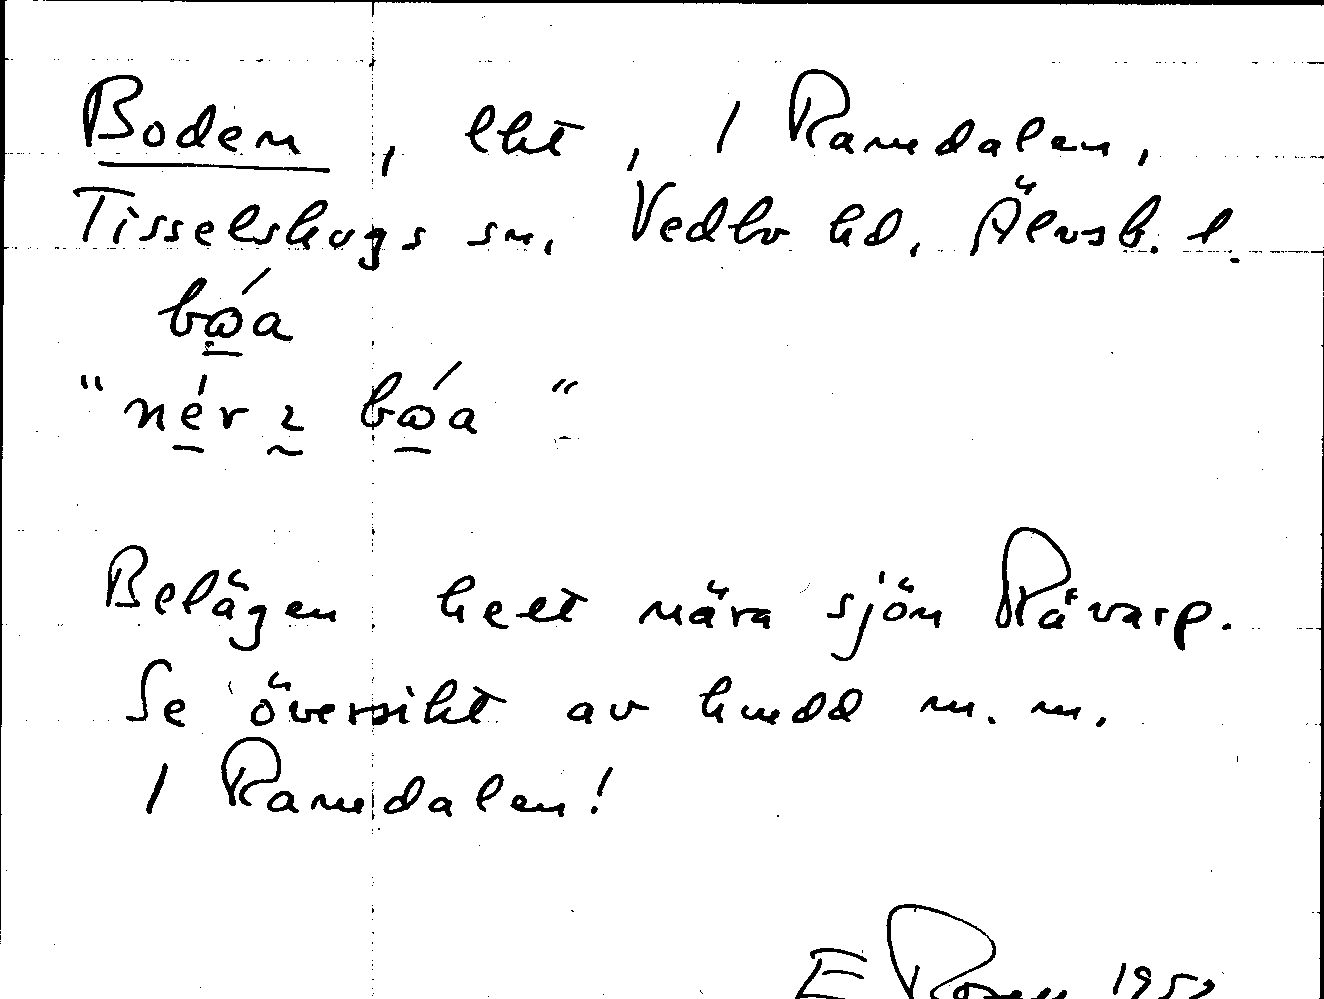 Boden, lht, 1 Ramdalen,
Tisselskogs sn, Vedbo hd, Älvsb. l.
bǿa
"nér ɩ bǿa"
Belägen helt nära sjön Råvarp.
Se översikt av hmdd m.m.
1 Ramdalen!
E Rosen 195